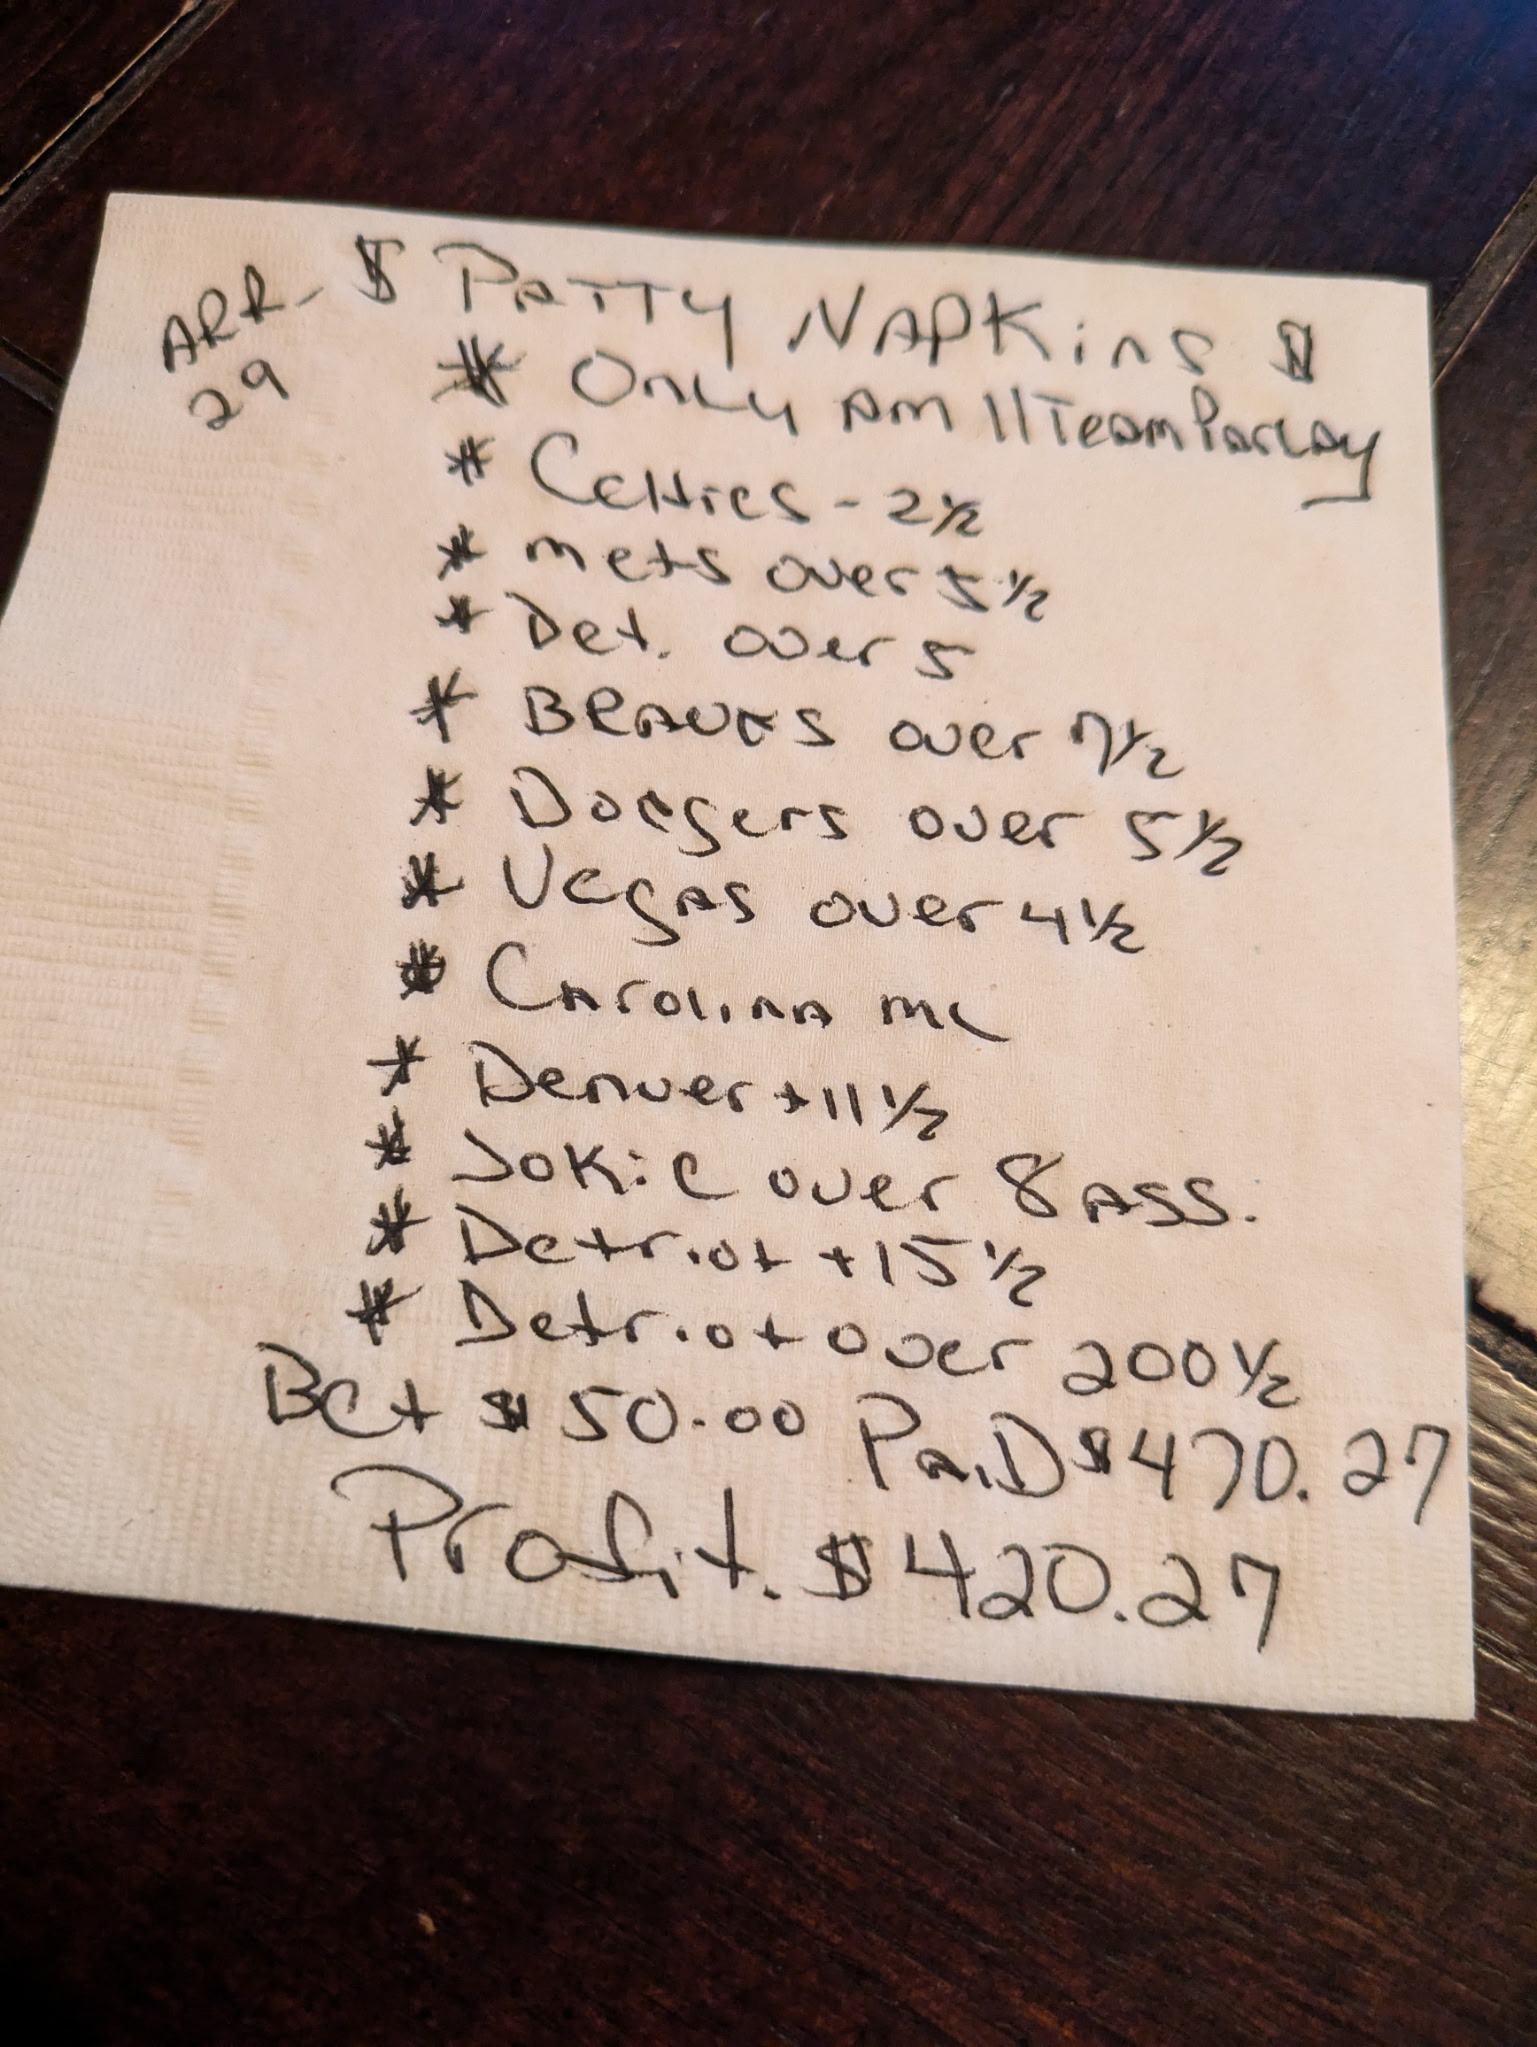 ARR- $ PATTY NAPKins $
29
* OnLy Am 11 Team ParLAy
* Celtics - 2 1/2
* mets over 5 1/2
* Det. over 5
* BRAVES over 7 1/2
* Dodgers over 5 1/2
* VegAs over 4 1/2
* CArolinA mL
* Denver +11 1/2
* Jokic over 8 ASS.
* Detriot +15 1/2
* Detriot over 200 1/2
Bet $ 50.00 PaiD $470.27
Profit. $420.27